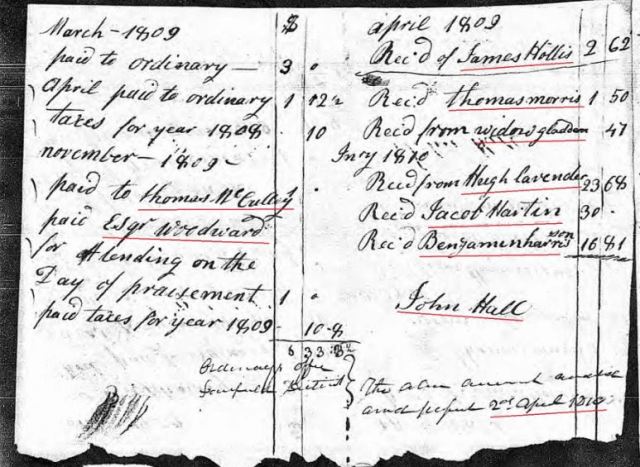 March - 1809 $
paid to ordinary — 3 "
April paid to ordinary 1 12½
taxes for year 1808 . 10
november - 1809 -
paid to thomas McCulley .
paid Esqr Woodward
for Atending on the
Day of praisement 1 "
paid taxes for year 1809 - 10-8
6 33:3½
april 1809
Rec'd of James Hollis 2 62
Rec'd thomas morris 1 50
Rec'd from widow gladden 47
Jnry 1810
Recd from Hugh Cavender 23 68
Rec'd Jacob Hartin 30 -
Rec'd Bengamin harrison 16 81
John Hall
Ordinarys office
District
The
and 2nd April 1810